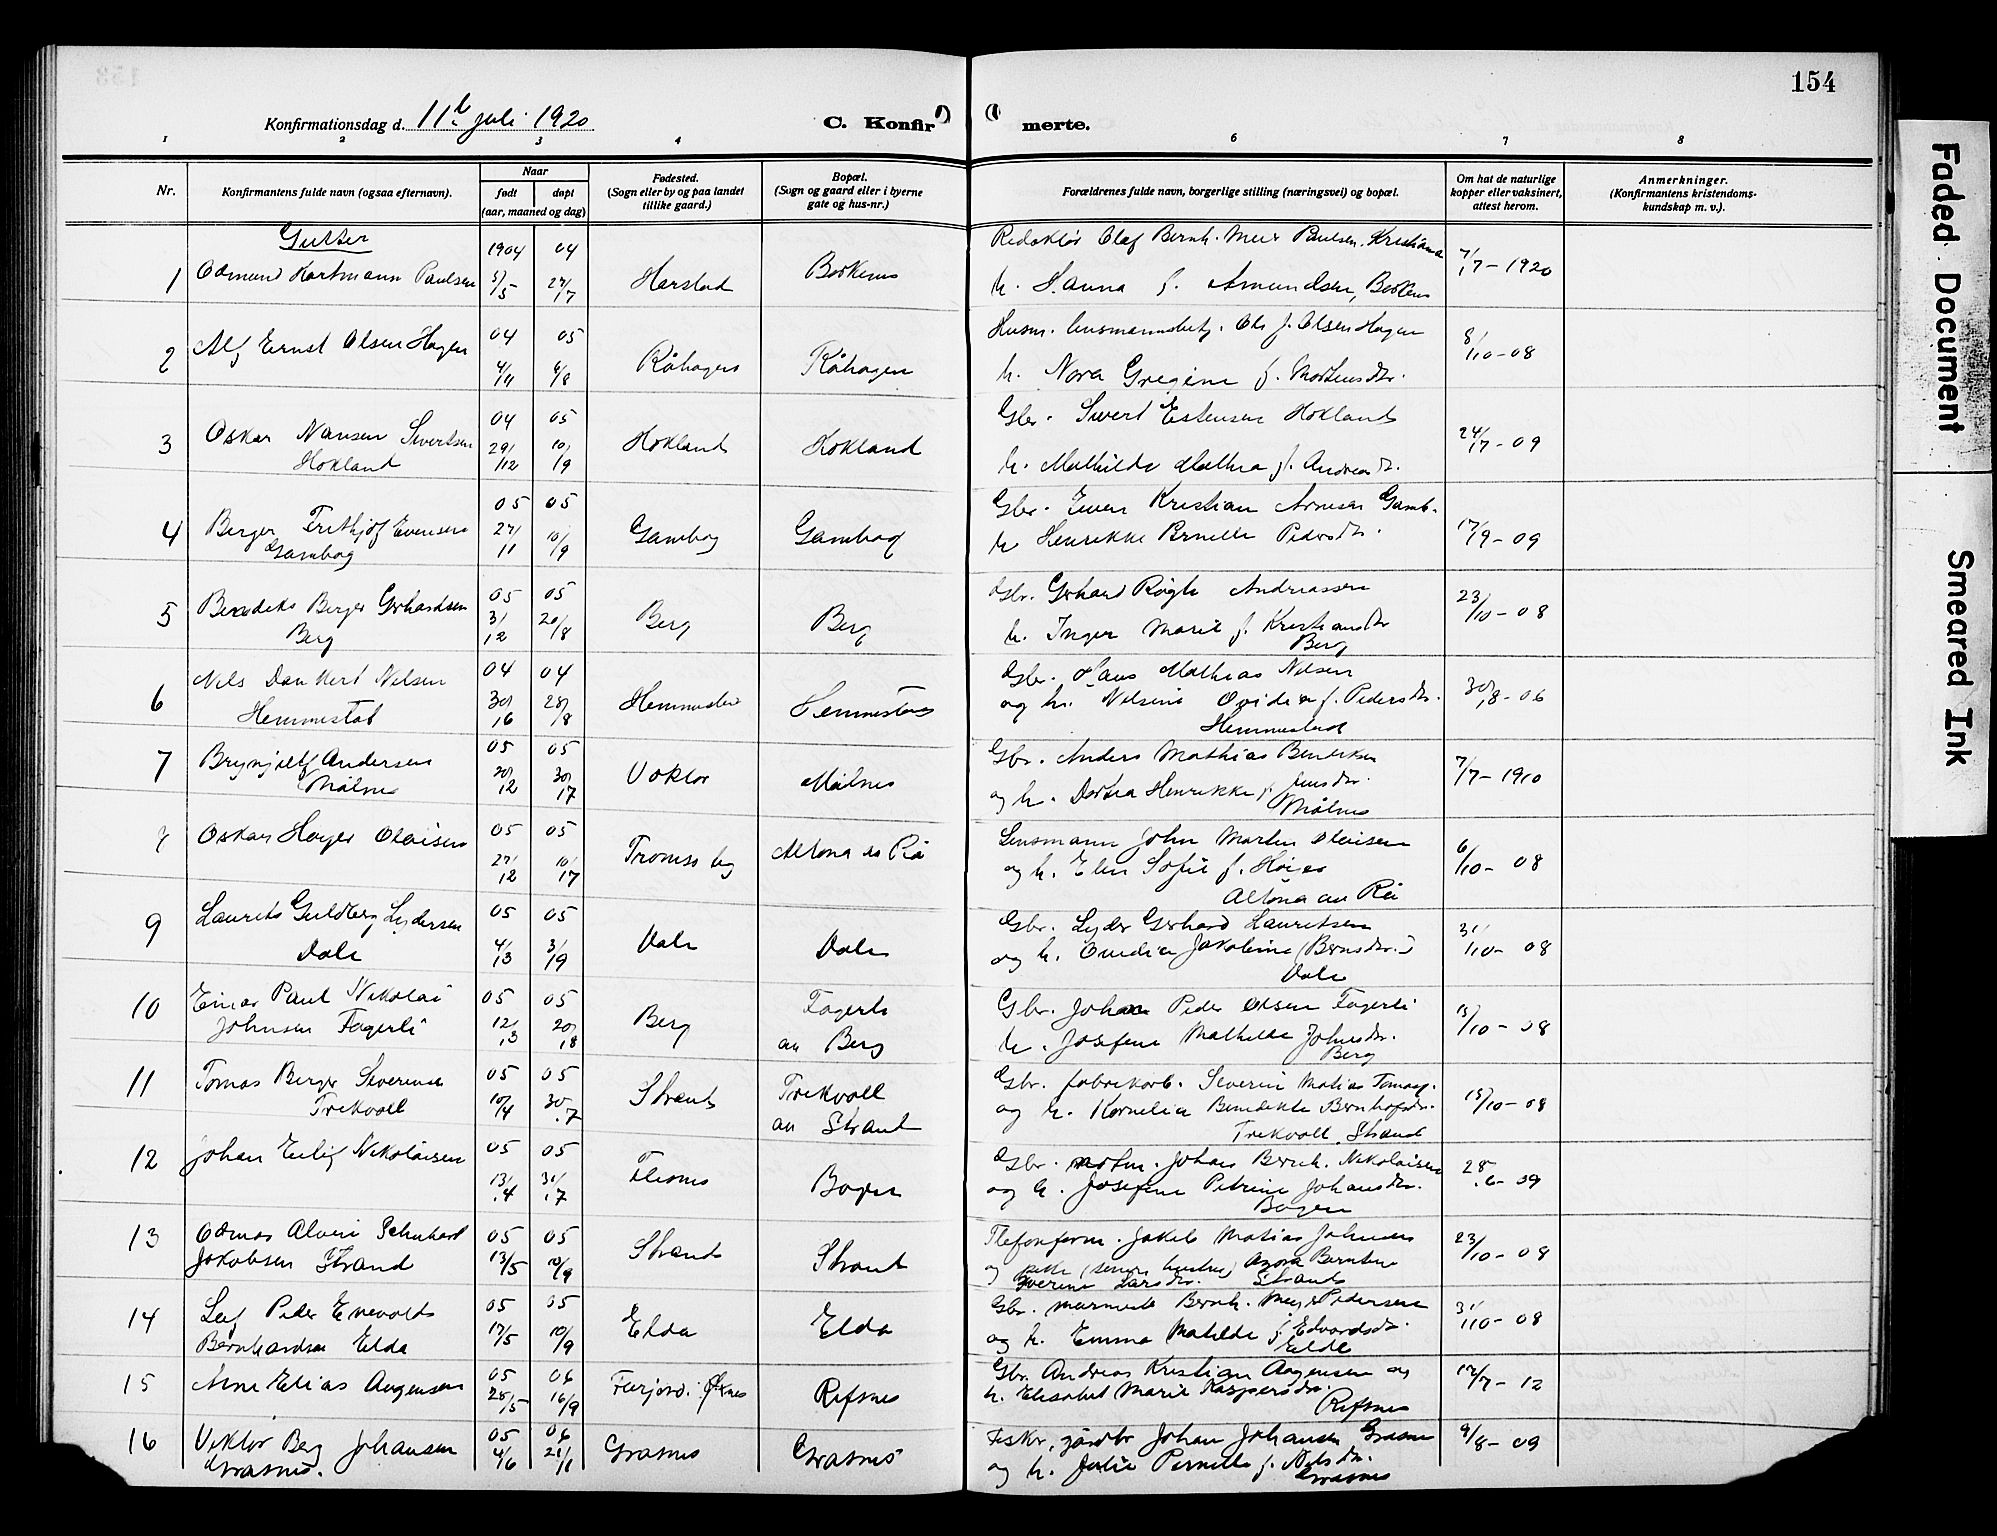 154
Konfirmationsdag d. 11te juli 1920
C. Konfirmerte.
1 2 3 4 5 6 7 8
Nr.
Konfirmantens fulde navn (ogsaa efternavn).
Naar
født
døpt
(aar, maaned og dag)
Fødested.
(Sogn eller by og paa landet
tillike gaard.)
Bopæl.
(Sogn og gaard eller i byerne
gate og hus-nr.)
Forældrenes fulde navn, borgerlige stilling (næringsvei) og bopæl.
Om hat de naturlige
kopper eller vaksinert,
attest herom.
Anmerkninger.
(Konfirmantens kristendoms-
kundskap m. v.).
Gutter
1904 04 Redaktør Olaf Bernh. Paulsen, Kristiania
1 Hartmann Paulsen 5/5 24/7 Harstad h. Hanna f. Amundsen 7/7-1920
2 Alf Ernst Olsen Hagen 04 05
4/11 6/8 Råhagen Råhagen
Ole J. Olsen Hagen
h. Nora f. Mortensdtr. 8/10-08
3 Oskar Nansen Sivertsen 04 05
Hokland 29/12 10/9 Hokland Hokland
Gbr. Sivert Estensen Hokland
h. Mathilde f. 24/7-09
4 Berger Frithjof Evensen 05 05
Gambog 27/1 10/9 Gambog Gambog
Gbr. Even Kristian Arnesen Gamb.
h. Henrikke Pernelle Pedersdtr. 17/9-09
5 Berger Gerhardsen 05 05
Berg 3/12 20/8 Berg Berg
Gbr. Gerhard Andreassen
h. Inger Marie f. Kristiansdtr
Berg 23/10-08
6 Nils Dankert Nilsen 04 04
Hemmestad 30/6 28/8 Hemmestad Hemmestad
Gbr. Hans Mathias Nilsen
og h. Nelsine Ovidia f. Pedersdtr.
Hemmestad 30/8-06
7 Brynjulf Andersen 05 05
Målnes 20/12 30/17 Voktor Målnes
Gbr. Anders Mathias Bendiksen
og h. Dortea Henrikke f. Jensdtr.
Målnes 7/7-1910
8 Oskar Olaisen 05 05
27/12 10/17 Tromsø by Altona av Rå
Lensmann John Martin Olaisen
og h. Elen Sofie f.
Altona av Rå 6/10-08
9 Laurits Guldberg Lydersen 05 05
Dale 4/3 3/9 Dale Dale
Gbr. Lyder Gerhard Lauritsen
og h. Jakobine (Bernsdtr.)
Dale 31/10-08
10 Einar Paul Nikolai 05 05
Johnsen Fagerli 12/3 20/8 Berg Fagerli
av Berg
Gbr. Johan Peder Olsen Fagerli
h. Josefine Mathilde Johnsdtr.
Berg 15/10-08
11 Tomas Berger Severinsen 05 05
Trekvoll 10/4 30/7 Strand Trekvoll
av Strand
Gbr. fabrikarb. Severin Matias Tomasg.
og h. Kornelia Benedikte
Trekvoll, Strand 15/10-08
12 Johan Eilif Nikolaisen 05 05
13/4 31/7 Flesnes Bogen
Gbr. Johan Bernh. Nikolaisen
og h. Josefine Petrine Johansdtr.
Bogen 28/6-09
13 Alvin 05 05
Jakobsen Strand 13/5 10/9 Strand Strand
Jakob Matias Johnsen
og
Larsdtr. Strand 23/10-08
14 Leif Peder Enevolds 05 05
Bernhardsen Elda 17/5 10/9 Elda Elda
Gbr. Bernh. Meyer Pedersen
og h. Emma Matilde f. Edvardsdtr.
Elde 31/10-08
15 Arne Elias Aagensen 05 06
28/5 16/9 Refsnes
Gbr. Andreas Kristian Aagensen og
h. Elisabet Marie Kaspersdtr.
Refsnes 12/7-12
16 Viktor Berg Johansen 05 06
Grasnes. 4/6 21/1 Grasnes Grasnes
Fisker, gårdbr Johan Johansen Grasnes
og h. Julie Pernelle f. Nilsdtr.
Grasnes 9/8-09
Faded Document
Smeared Ink